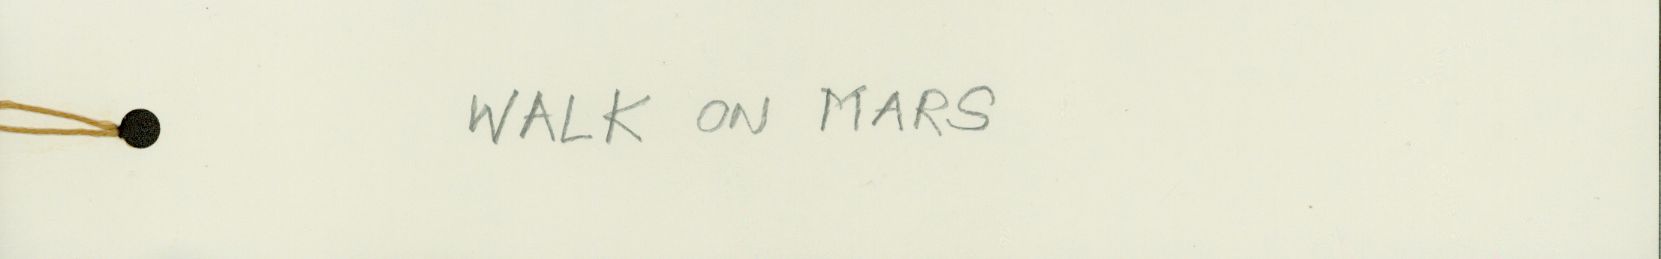 WALK ON MARS